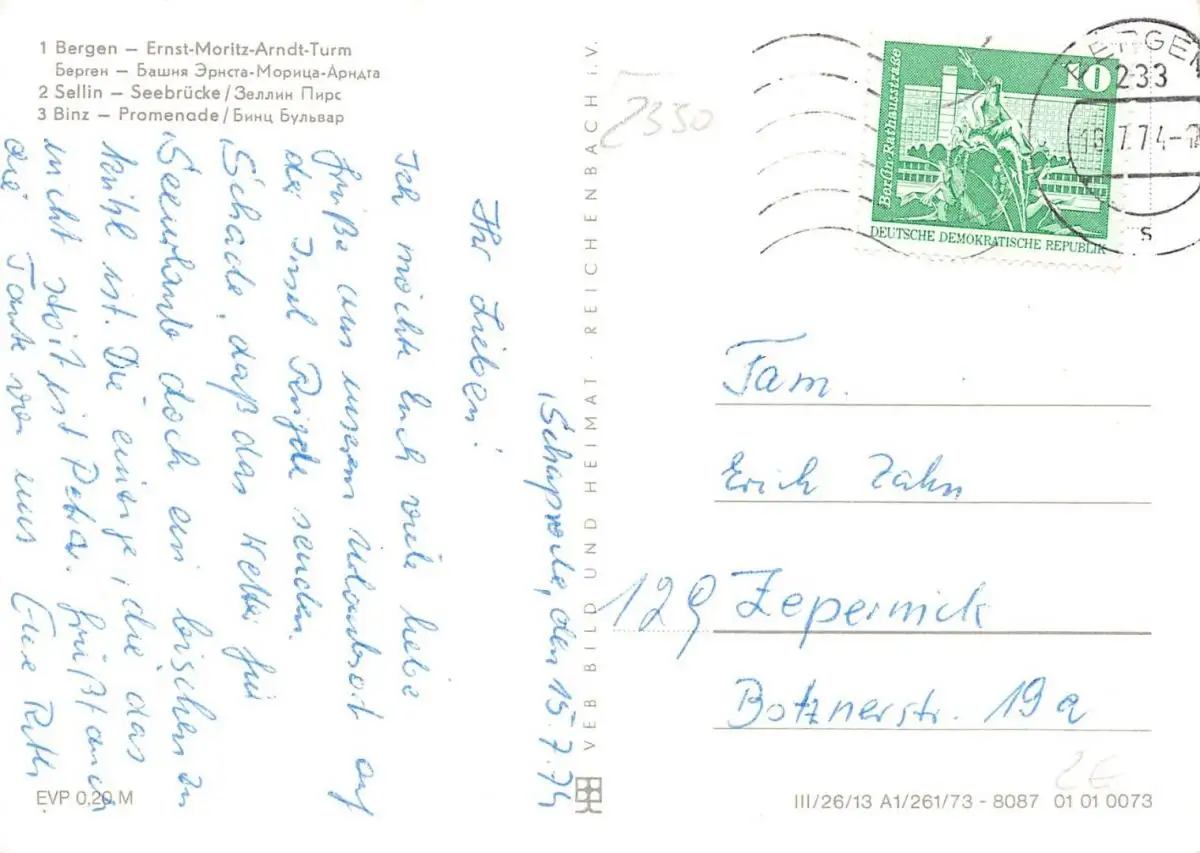 1 Bergen – Ernst-Moritz-Arndt-Turm
Берген – Башня Эрнста-Морица-Арндта
2 Sellin – Seebrücke/Зеллин Пирс
3 Binz – Promenade/Бинц Бульвар
Schaprode, den 15.7.74
Ihr Lieben!
Ich möchte Euch viele liebe
Grüße aus unserem Urlaubsort auf
der Insel Rügen senden.
Schade, daß das Wetter für
Seeurlaub doch ein bißchen zu
kühl ist. Die einzige, die das
nicht stört ist Petra. Grüßt auch
die Tante von uns Eure Ruth
EVP 0,20 M
VEB BILD UND HEIMAT · REICHENBACH i. V.
2330
Berlin, Rathausstraße
10
DEUTSCHE DEMOKRATISCHE REPUBLIK
BERGEN
233
16.7.74
s
Fam.
Erich Zahn
129 Zepernick
Botznerstr. 19a
2E
III/26/13 A1/261/73 - 8087 01 01 0073